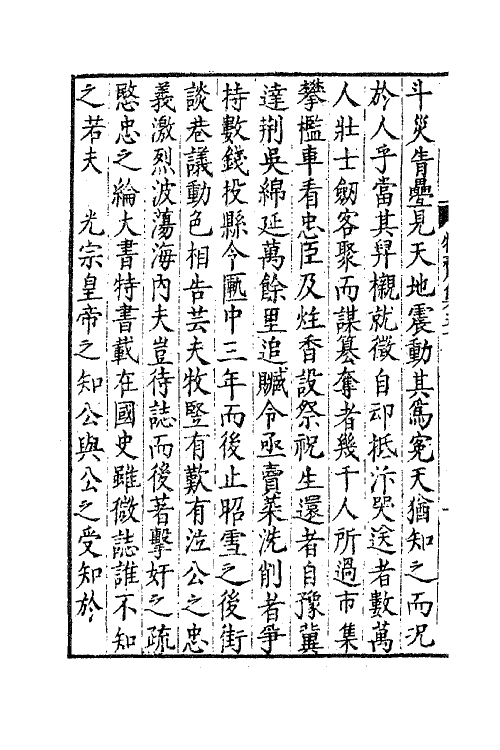 斗災眚疊見天地震動其為冤天猶知之而况
於人乎當其舁櫬就徵自邔抵汴哭送者數萬
人壯士劒客聚而謀篡奪者幾千人所過市集
攀檻車看忠臣及炷香設祭祝生還者自豫冀
達荆吳綿延萬餘里追贓令亟賣菜洗削者爭
持數錢投縣令匭中三年而後止昭雪之後街
談巷議動色相告芸夫牧豎有歎有泣公之忠
義激烈波蕩海內夫豈待誌而後著擊奸之疏
愍忠之綸大書特書載在國史雖微誌誰不知
之若夫　光宗皇帝之知公與公之受知於